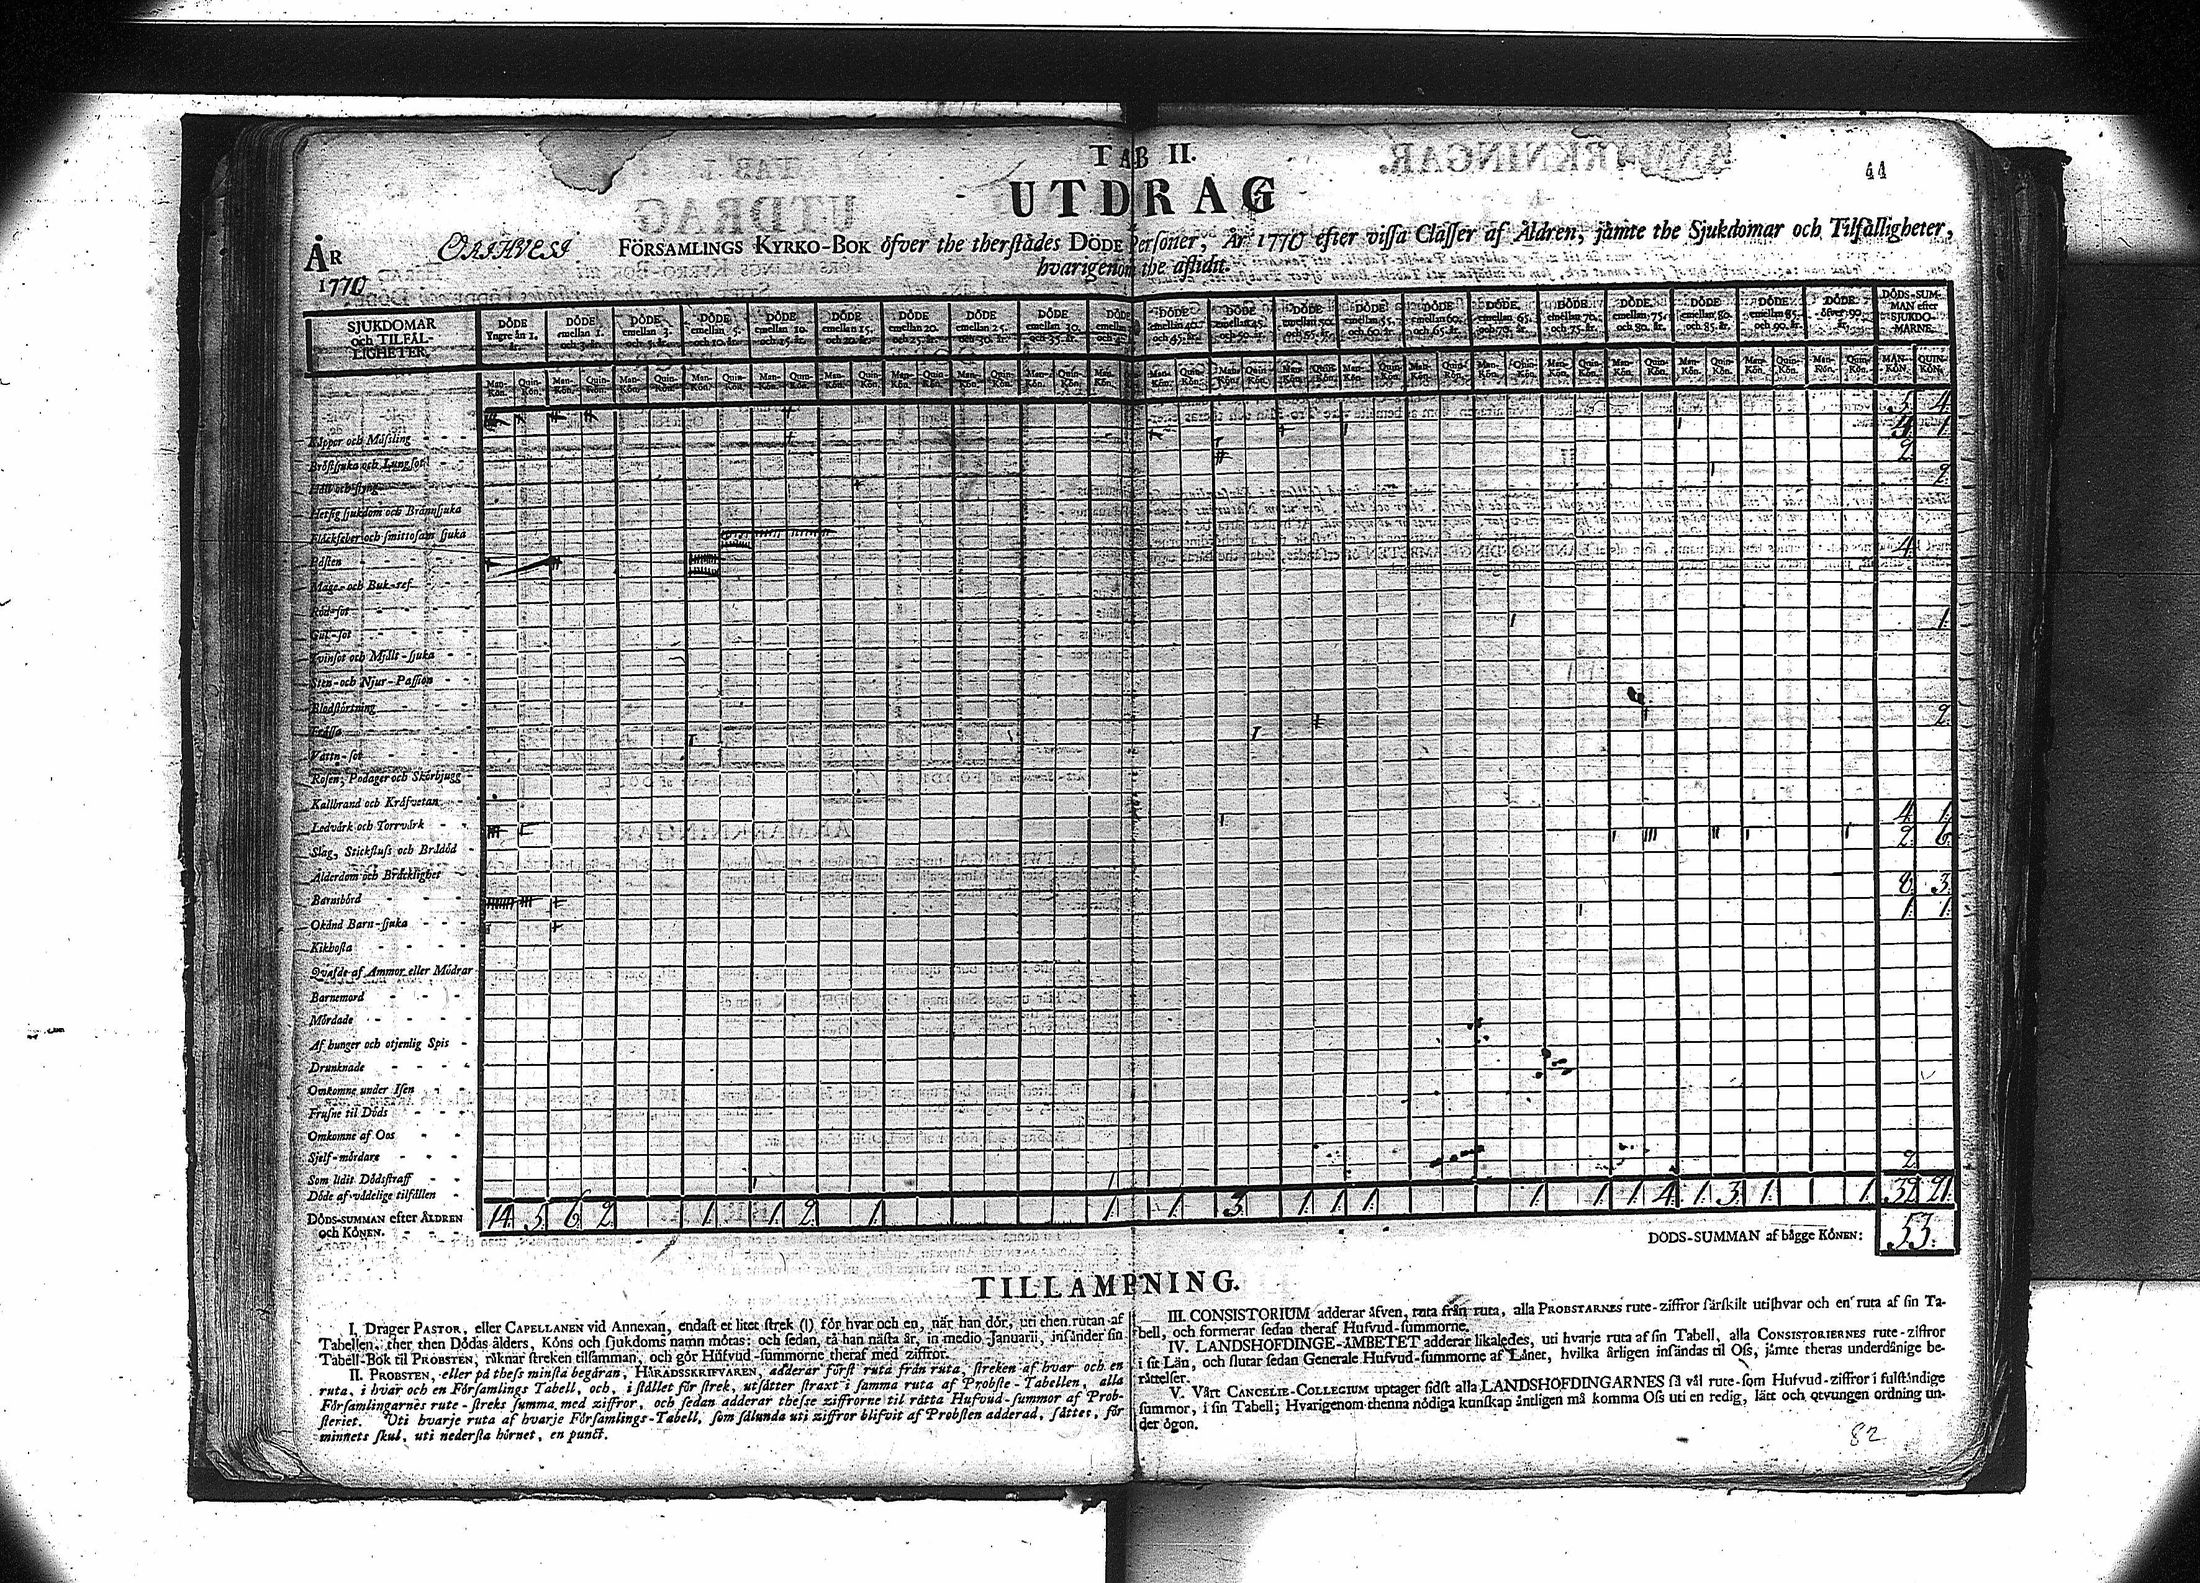 TAB II.
44
UTDRAG
ÅR
1770
FÖRSAMLINGS KYRKO-BOK öfver the therstädes DÖDE Personer, År 1770 efter vissa Classer af Åldren, jämte the Sjukdomar och Tilfälligheter,
hvarigenom the aflidit.
SJUKDOMAR och TILFÄLLIGHETER.
DÖDE Yngre än 1. år.
DÖDE emellan 1. och 3. år.
DÖDE emellan 3. och 5. år.
DÖDE emellan 5. och 10. år.
DÖDE emellan 10. och 15. år.
DÖDE emellan 15. och 20. år.
DÖDE emellan 20. och 25. år.
DÖDE emellan 25. och 30. år.
DÖDE emellan 30. och 35. år.
DÖDE emellan
DÖDE emellan 40. och 45. år.
DÖDE emellan 45. och 50. år.
DÖDE emellan 50. och 55. år.
DÖDE emellan 55. och 60. år.
DÖDE emellan 60. och 65. år.
DÖDE emellan 65. och 70. år.
DÖDE emellan 70. och 75. år.
DÖDE emellan 75. och 80. år.
DÖDE emellan 80. och 85. år.
DÖDE emellan 85. och 90. år.
DÖDE öfver 90. år.
DÖDS-SUMMAN efter SJUKDOMARNE.
Man-Kön. Quin-Kön.
MAN-KÖN. QUIN-KÖN.
5. 4.
Kåppor och Mässling 1.
Bröstsjuka och Lungsot 2.
Håll och styng 2.
Hetsig sjukdom och Brännsjuka
Fläckfeber och smittosam sjuka
Pästen 4.
Mage- och Buk-ref
Röd-sot
Gul-sot 1.
Tvinsot och Mjält-sjuka
Sten- och Njur-Passion
Blodstörtning
Frossa 2.
Vattn-sot
Rosen, Podager och Skörbjugg
Kallbrand och Kräfvetan
Ledvärk och Torrvärk 4. 1.
Slag, Stickfluss och Brådöd 2. 6.
Ålderdom och Bräcklighet
Barnsbörd 8. 3.
Okänd Barn-sjuka 1. 1.
Kikhosta
Qvafde af Ammor eller Mödrar
Barnemord
Mördade
Af hunger och otjenlig Spis
Drunknade
Omkomne under Isen
Frusne til Döds
Omkomne af Oos
Sjelf-mördare 2.
Som lidit Dödsstraff
Döde af vådelige tilfällen
DÖDS-SUMMAN efter ÅLDREN och KÖNEN. 14. 5. 6. 2. 1. 1. 2. 1. 1. 1. 3. 1. 1. 1. 1. 1. 1. 4. 1. 3. 1. 1. 32. 21.
DÖDS-SUMMAN af bägge KÖNEN: 53.
TILLÄMPNING.
I. Drager PASTOR, eller CAPELLANEN vid Annexan, endast et litet strek (|) för hvar och en, när han dör, uti then rutan af
Tabellen, ther then Dödas ålders, Köns och sjukdoms namn mötas: och sedan, tå han nästa år, in medio Januarii, insänder sin
Tabell-Bok til PROBSTEN, räknar streken tillsamman, och gör Hufvud-summorne theraf med ziffror.
II. PROBSTEN, eller på thess minsta begäran, HÄRADSSKRIFVAREN, adderar först ruta från ruta, streken af hvar och en
ruta, i hvar och en Församlings Tabell, och, i stället för strek, utsätter straxt i samma ruta af Probste-Tabellen, alla
Församlingarnes rute-streks summa med ziffror, och sedan adderar thesse ziffrorne til rätta Hufvud-summor af Probsteriet.
Uti hvarje ruta af hvarje Församlings-Tabell, som sålunda uti ziffror blifvit af Probsten adderad, sättes, för
minnets skul, uti nedersta hörnet, en punct.
III. CONSISTORIUM adderar äfven, ruta från ruta, alla PROBSTARNES rute-ziffror särskilt uti hvar och en ruta af sin Tabell,
och formerar sedan theraf Hufvud-summorne.
IV. LANDSHOFDINGE-ÄMBETET adderar likaledes, uti hvarje ruta af sin Tabell, alla CONSISTORIERNES rute-ziffror
i sit Län, och slutar sedan Generale Hufvud-summorne af Länet, hvilka årligen insändas til Oss, jämte theras underdånige berättelser.
V. Vårt CANCELIE-COLLEGIUM uptager sidst alla LANDSHÖFDINGARNES så väl rute- som Hufvud-ziffror i fulständige
summor, i sin Tabell; Hvarigenom thenna nödiga kunskap äntligen må komma Oss uti en redig, lätt och otvungen ordning under
ögon.
82